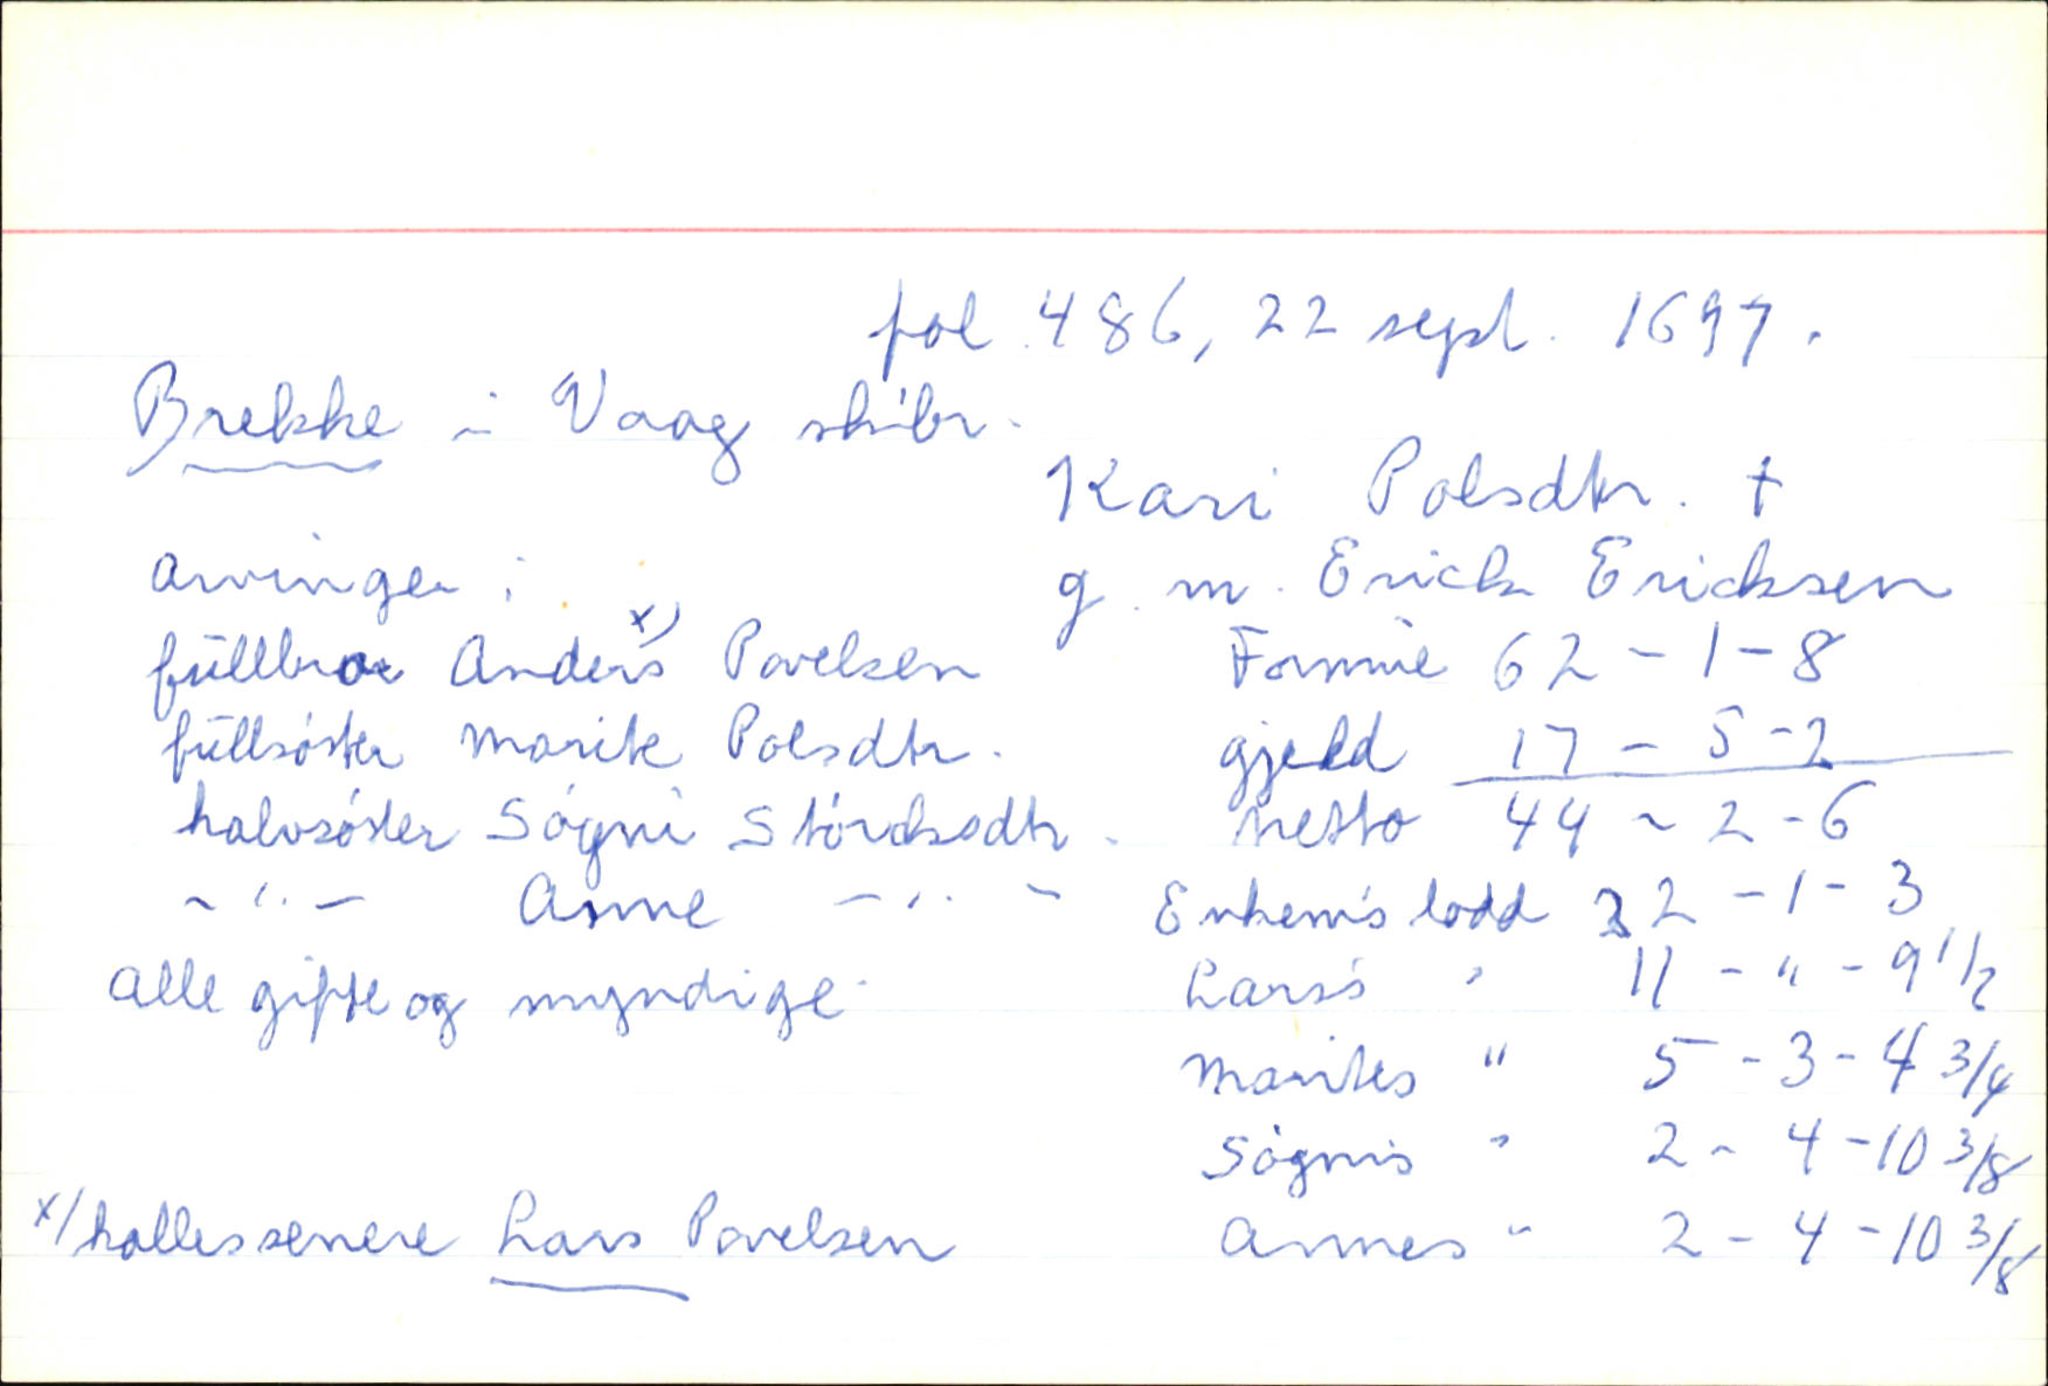 fol. 486, 22 sept. 1697.
Brekke i Vaag skibr.
Kari Polsdtr. †
g. m. Erick Ericksen
arvinger:
fullbror Anders x) Povelsen
fullsøster Marite Polsdtr.
halvsøster Søgni Størcksdtr.
-"- Anne -"-
alle gifte og myndige.
Formue 62-1-8
gjeld 17-5-2
netto 44-2-6
Enkem's lodd 22-1-3
Lars's " 11-"-9 1/2
Marites " 5-3-4 3/4
Søgnis " 2-4-10 3/8
Annes " 2-4-10 3/8
x) kalles senere Lars Povelsen